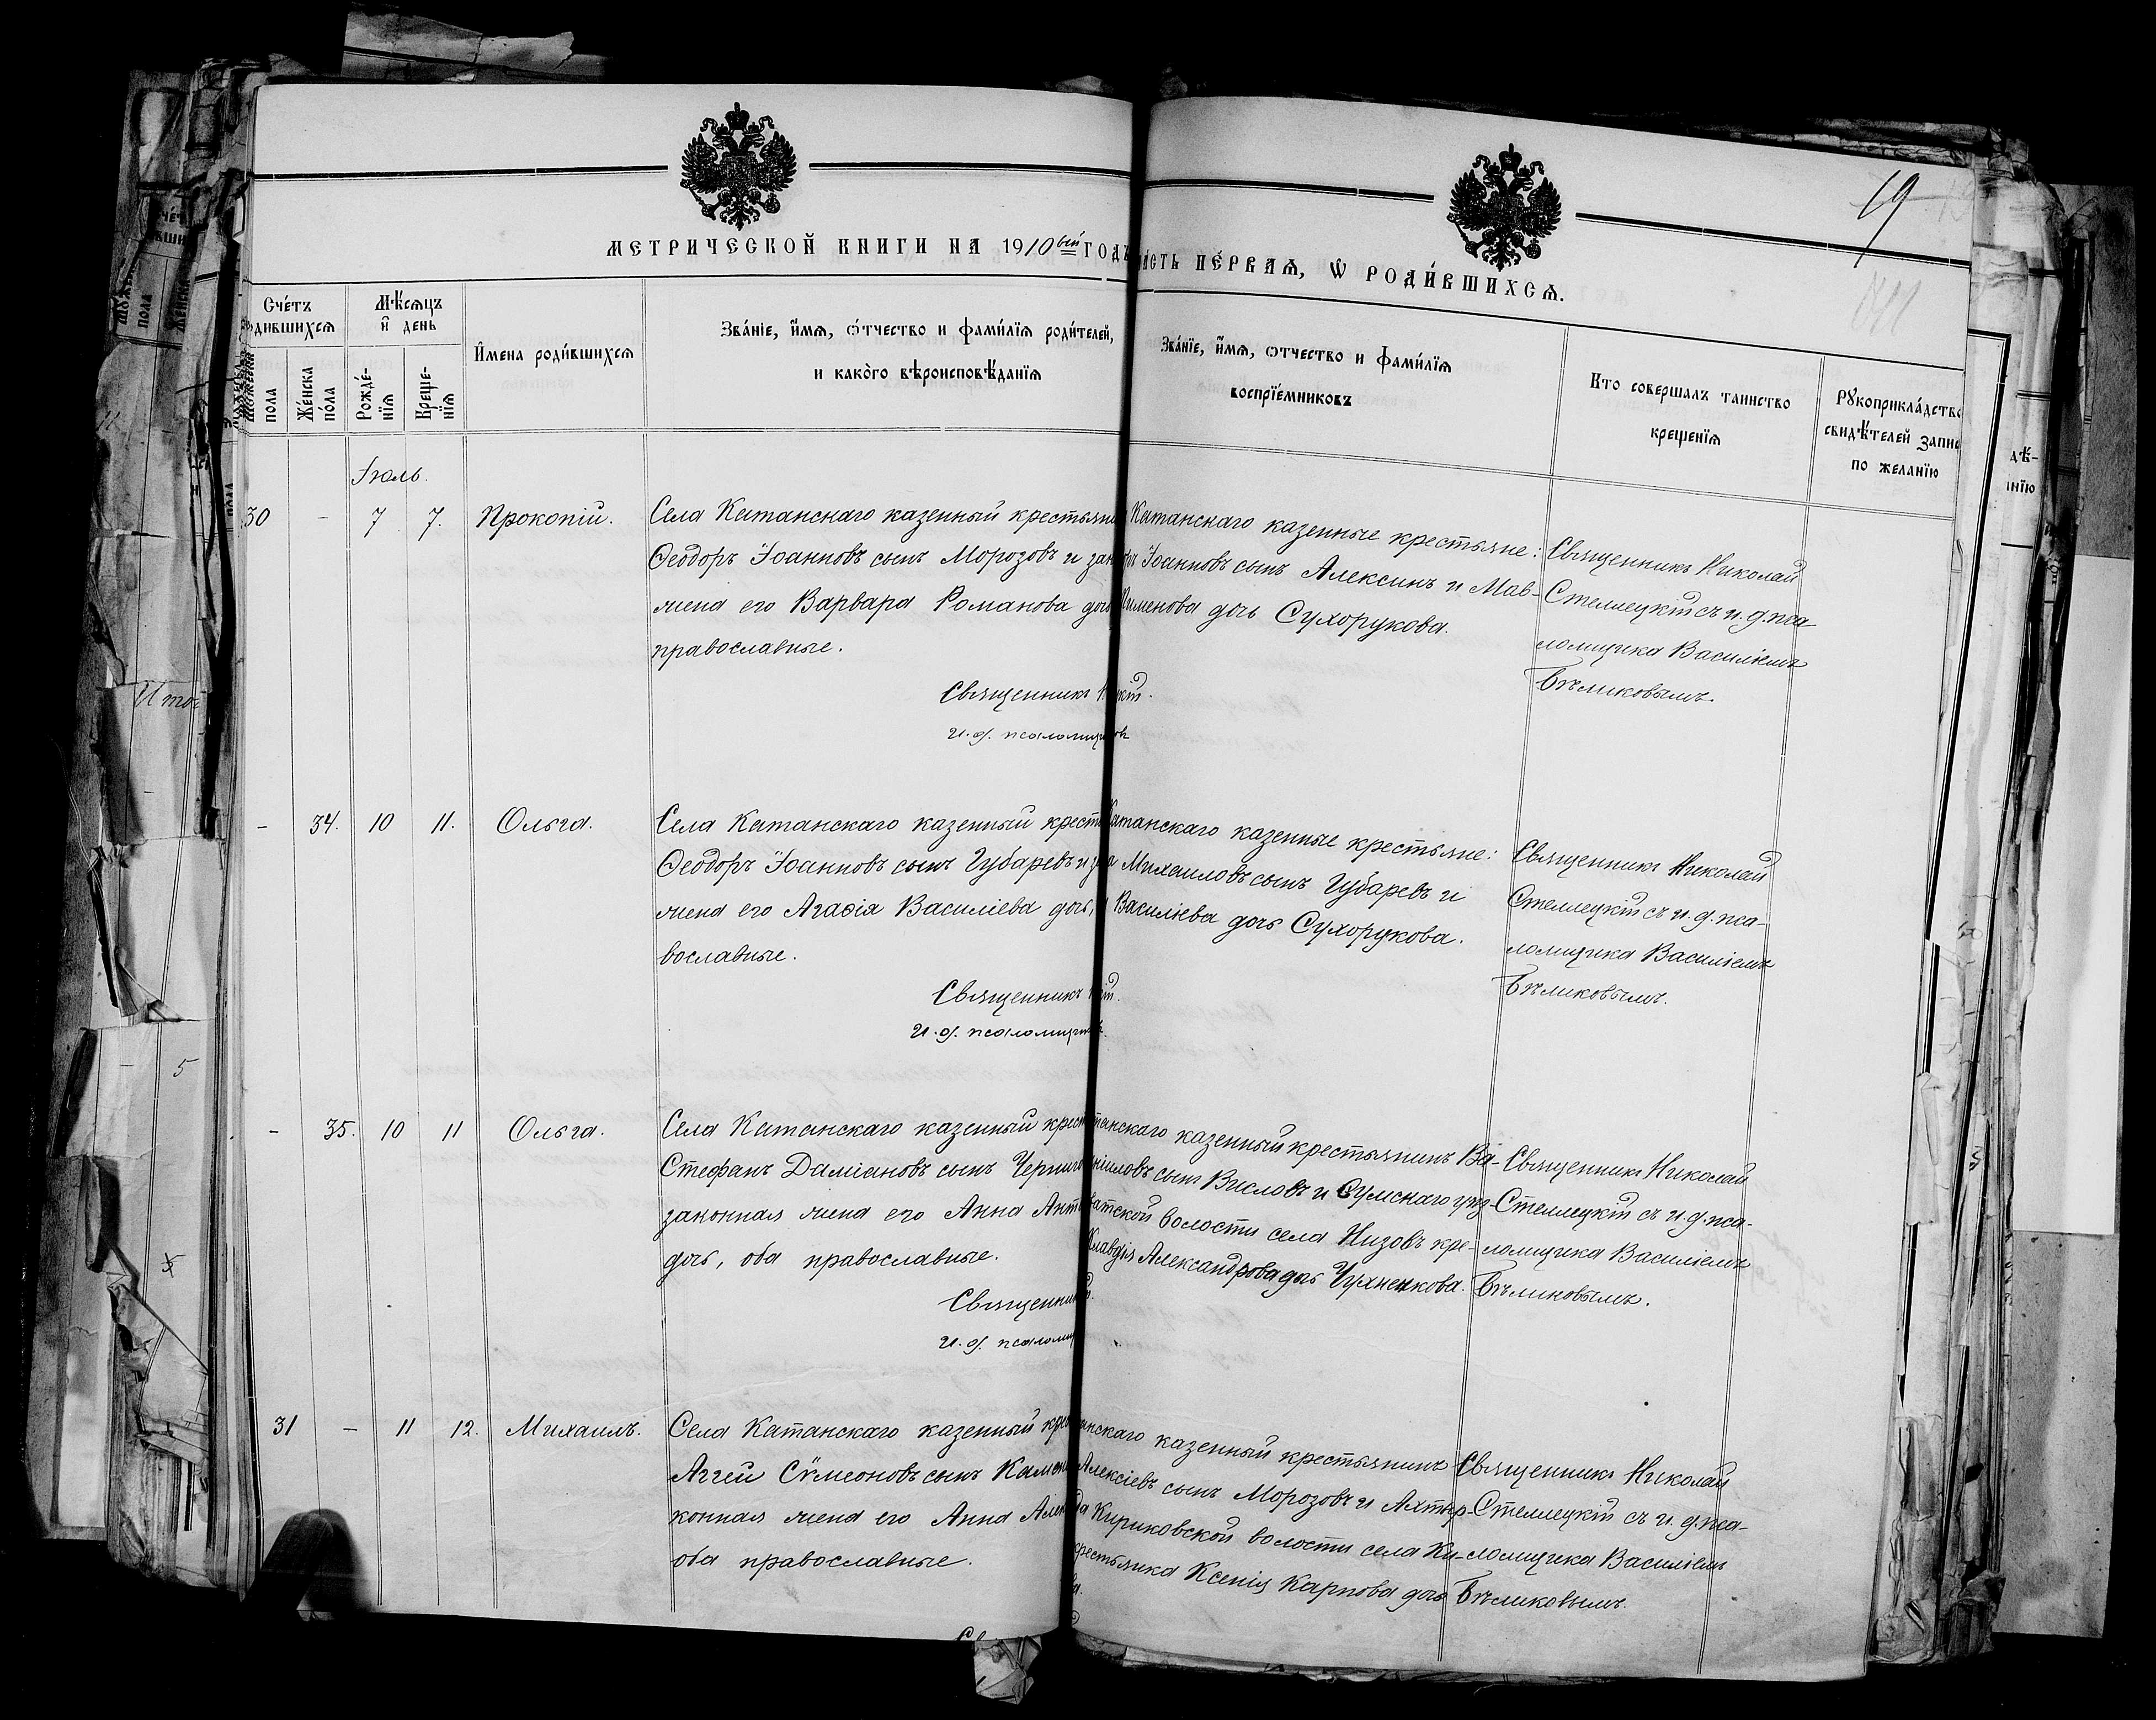 МЕТРИЧЕСКОЙ КНИГИ НА 1910вый ГОДЪ
ЧАСТЬ ПЕ́РВАЯ, Ѡ РОДИ́ВШИХСѦ.
19
Сче́тъ родившихсѧ
Мѣ́сѧцъ и҆ день
И҆мена роди́вшихсѧ
Зва́нїе, и҆́мѧ, ѻ҆́тчество и фами́лїѧ роди́телей,
и како́го вѣроисповѣ́данїѧ
Зва́нїе, и҆́мѧ, ѻтчество и фами́лїѧ
воспрїе́мниковъ
Кто совершалъ таинство
крещенїѧ
Рꙋкоприкла́дство
свидѣ́телей запис
по желанїю
Мꙋжеска пола
Же́нска по́ла
Рожде́-нїѧ
Креще-нїѧ
Іюль.
30 – 7 7. Прокопій.
Села Катанскаго казенный крестьянин
Ѳеодоръ Іоанновъ сынъ Морозовъ и закон
жена его Варвара Романова дочь
православные.
Священникъ
и. д. псаломщи
Катанскаго казенные крестьяне:
Іоанновъ сынъ Алексинъ и Мав-
Пименова дочь Сухорукова.
Священникъ Николай
Стеллецкій съ и. д. пса
ломщика Василіемъ
Бѣликовымъ.
– 34. 10 11. Ольга.
Села Катанскаго казенный крест
Ѳеодоръ Іоанновъ сынъ Губаревъ и за
жена его Агаѳія Василіева дочь,
вославные.
Священникъ
и. д. псаломщи
Катанскаго казенные крестьяне:
Михаиловъ сынъ Губаревъ и
Василіева дочь Сухорукова.
Священникъ Николай
Стеллецкій съ и. д. пса-
ломщика Василіемъ
Бѣликовымъ.
– 35. 10 11 Ольга.
Села Катанскаго казенный крест
Стефанъ Даміановъ сынъ Черниго
законная жена его Анна Ант
дочь, оба православные.
Священник
и. д. псаломщ
танскаго казенный крестьянинъ Ва-
ніиловъ сынъ Висловъ и Сумскаго уѣз-
атской волости села Низовъ кре-
Клавдія Александрова дочь Чухненкова.
Священникъ Николай
Стеллецкій съ и. д. пса-
ломщика Василіемъ
Бѣликовымъ.
31 – 11 12. Михаилъ.
Села Катанскаго казенный кре
Аггей Сѵмеоновъ сынъ Камен
конная жена его Анна Алек
оба православные.
анскаго казенный крестьянинъ
Алексіевъ сынъ Морозовъ и Ахтыр-
да Кириковской волости села Ки-
крестьянка Ксенія Карпова дочь
Священникъ Николай
Стеллецкій съ и. д. пса-
ломщика Василіемъ
Бѣликовымъ.